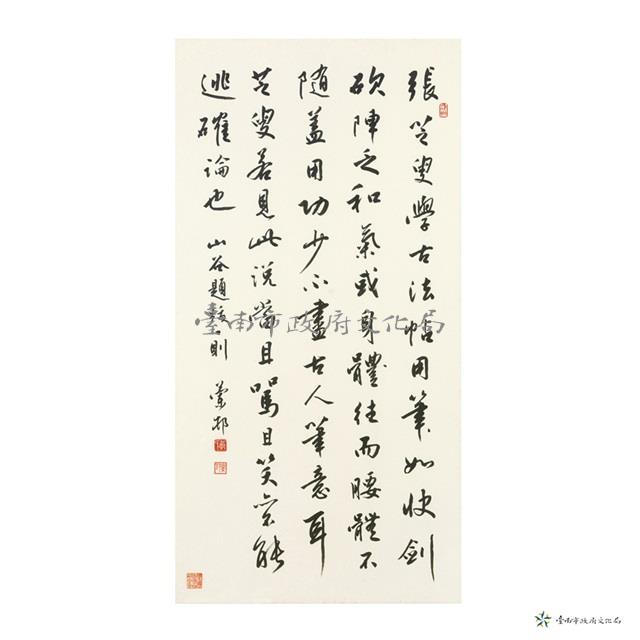 張芸叟學古法帖用筆如快劍
砍陣乏和氣或身體往而腰體不
隨蓋用功少不盡古人筆意耳
芸叟若見此說當且罵且笑安能
逃確論也 山谷題跋一則 邨
臺南市政府文化局
臺南市政府文化局